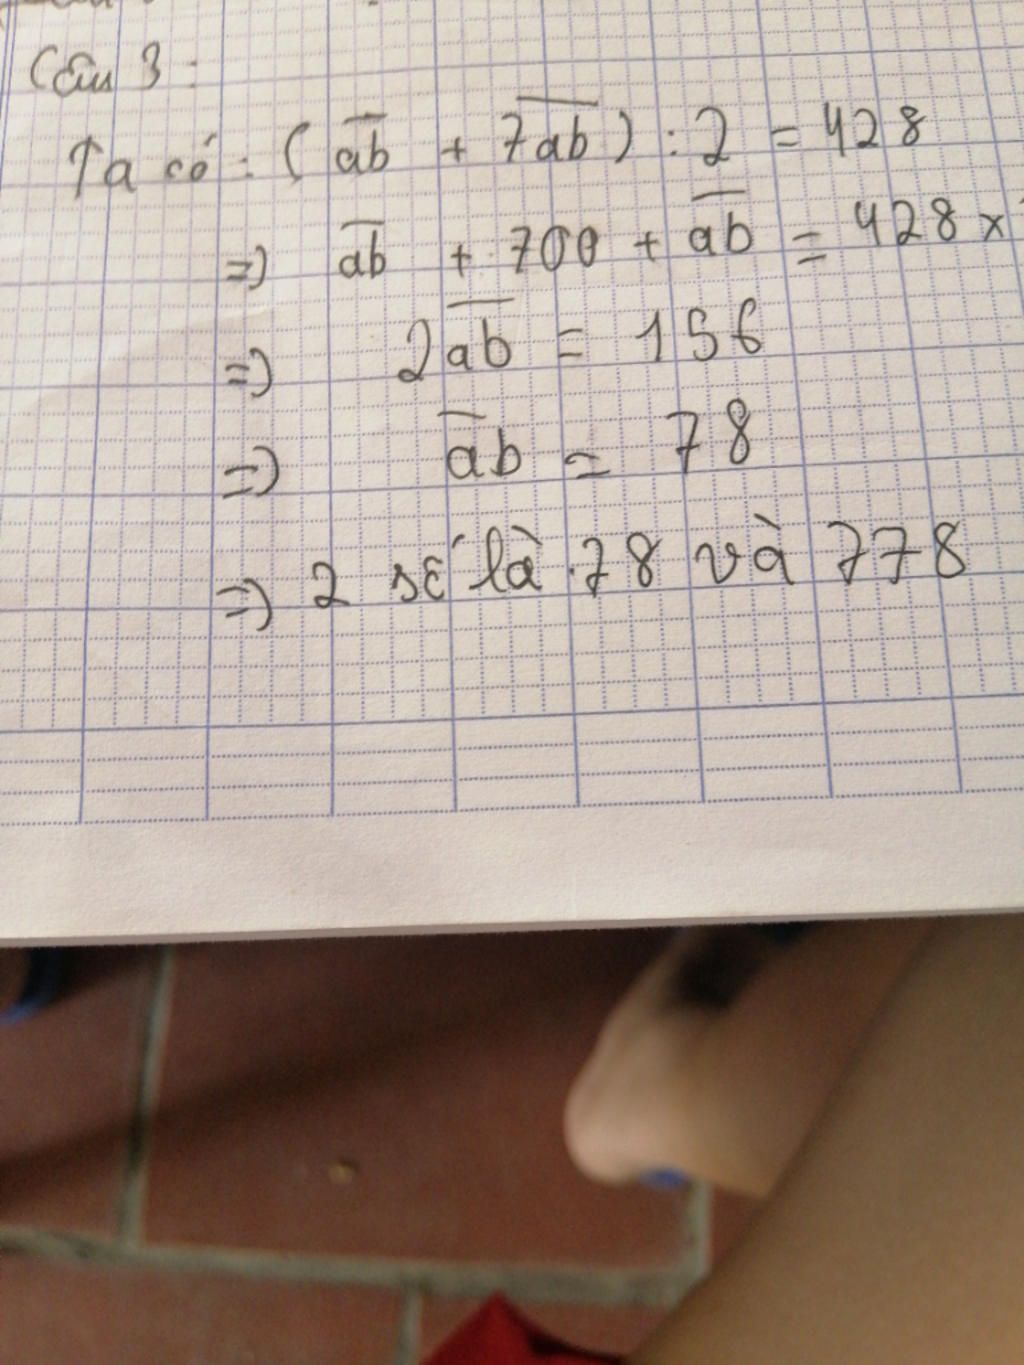 Câu 3 :
Ta có : ( ab + 7ab ) : 2 = 428
=> ab + 700 + ab = 428 x
=> 2ab = 156
=> ab = 78
=> 2 số là 78 và 778